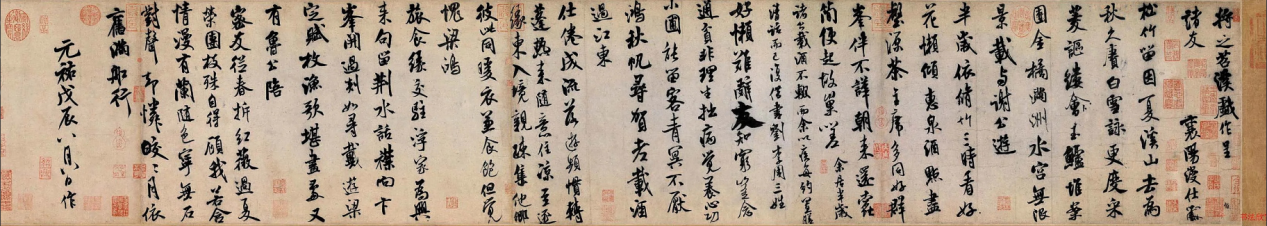 將之苕溪戲作呈
諸友
襄陽漫仕黻
松竹留因夏溪山去為
秋久賡白雪詠更度采
菱謳縷會玉鱸堆案
團金橘滿洲水宮無限
景載與謝公遊
半歲依脩竹三時看好
花懶傾惠泉酒點盡
壑源茶主席多同好群
峯伴不譁朝來還蠹
簡便起故巢嗟 余居半歲
諸公載酒不輟而余以疾每約置膳
清話而已復借書劉李周三姓
好懶難辭友知窮豈念
通貧非理生拙病覺養心功
小圃能留客青冥不厭
鴻秋帆尋賀老載酒
過江東
仕倦成流落遊頻慣轉
蓬熱來隨意住涼至逐
緣東入境親疎集他鄉
彼此同暖衣兼食飽但覺
愧梁鴻
旅食緣交駐浮家為興
來句留荊水話襟向卞
峯開過剡如尋戴遊梁
定賦枚漁歌堪畫處又
有魯公陪
密友從春拆紅薇過夏
榮團枝殊自得顧我若含
情漫有蘭隨色寧無石
對聲却憐皎皎月依
舊滿船行
元祐戊辰八月八日作